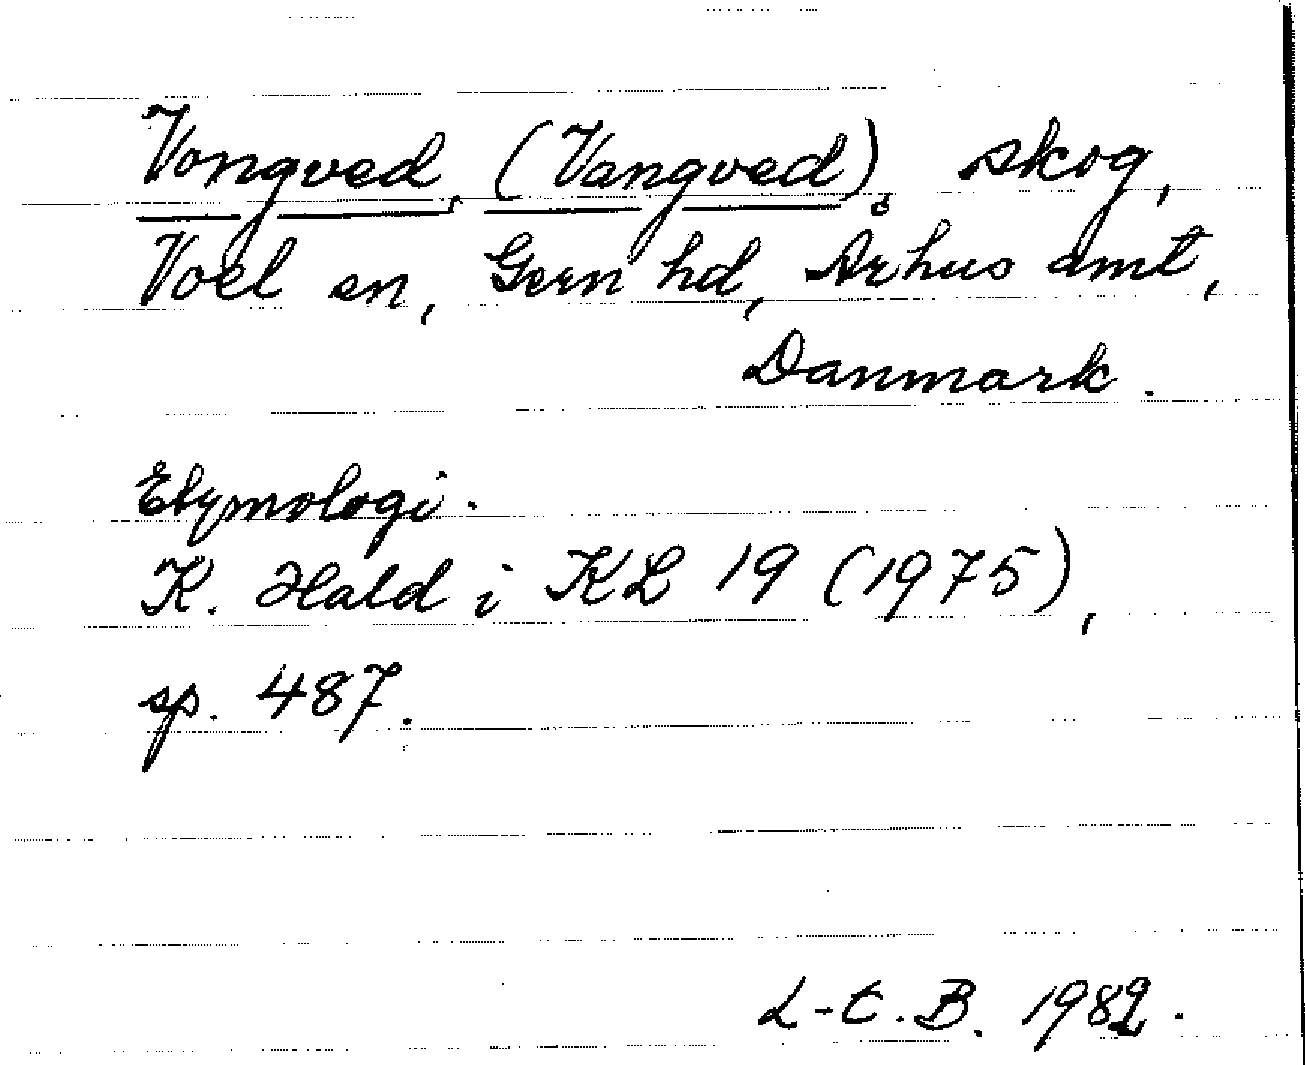 Vongved, (Vangved), skog,
Voel sn, Gern hd, Århus amt,
Danmark.
Etymologi.
K. Hald i KL 19 (1975),
sp. 487.
L-E.B. 1982.